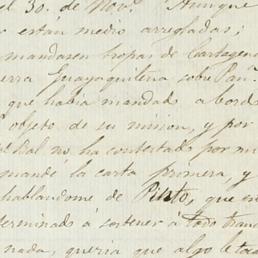 el 30. de Nov.e Aunque
estan medio arregladas;
mandasen tropas de Cartagena
erra Guayaquileña sobre Pan.
que habia mandado a bordo
objeto de su mision, y por
no ha contestado por mi
mandé la carta primera, y
hablandome de Pinto, que en
terminado á sostener á todo tranc
nada, queria que algo